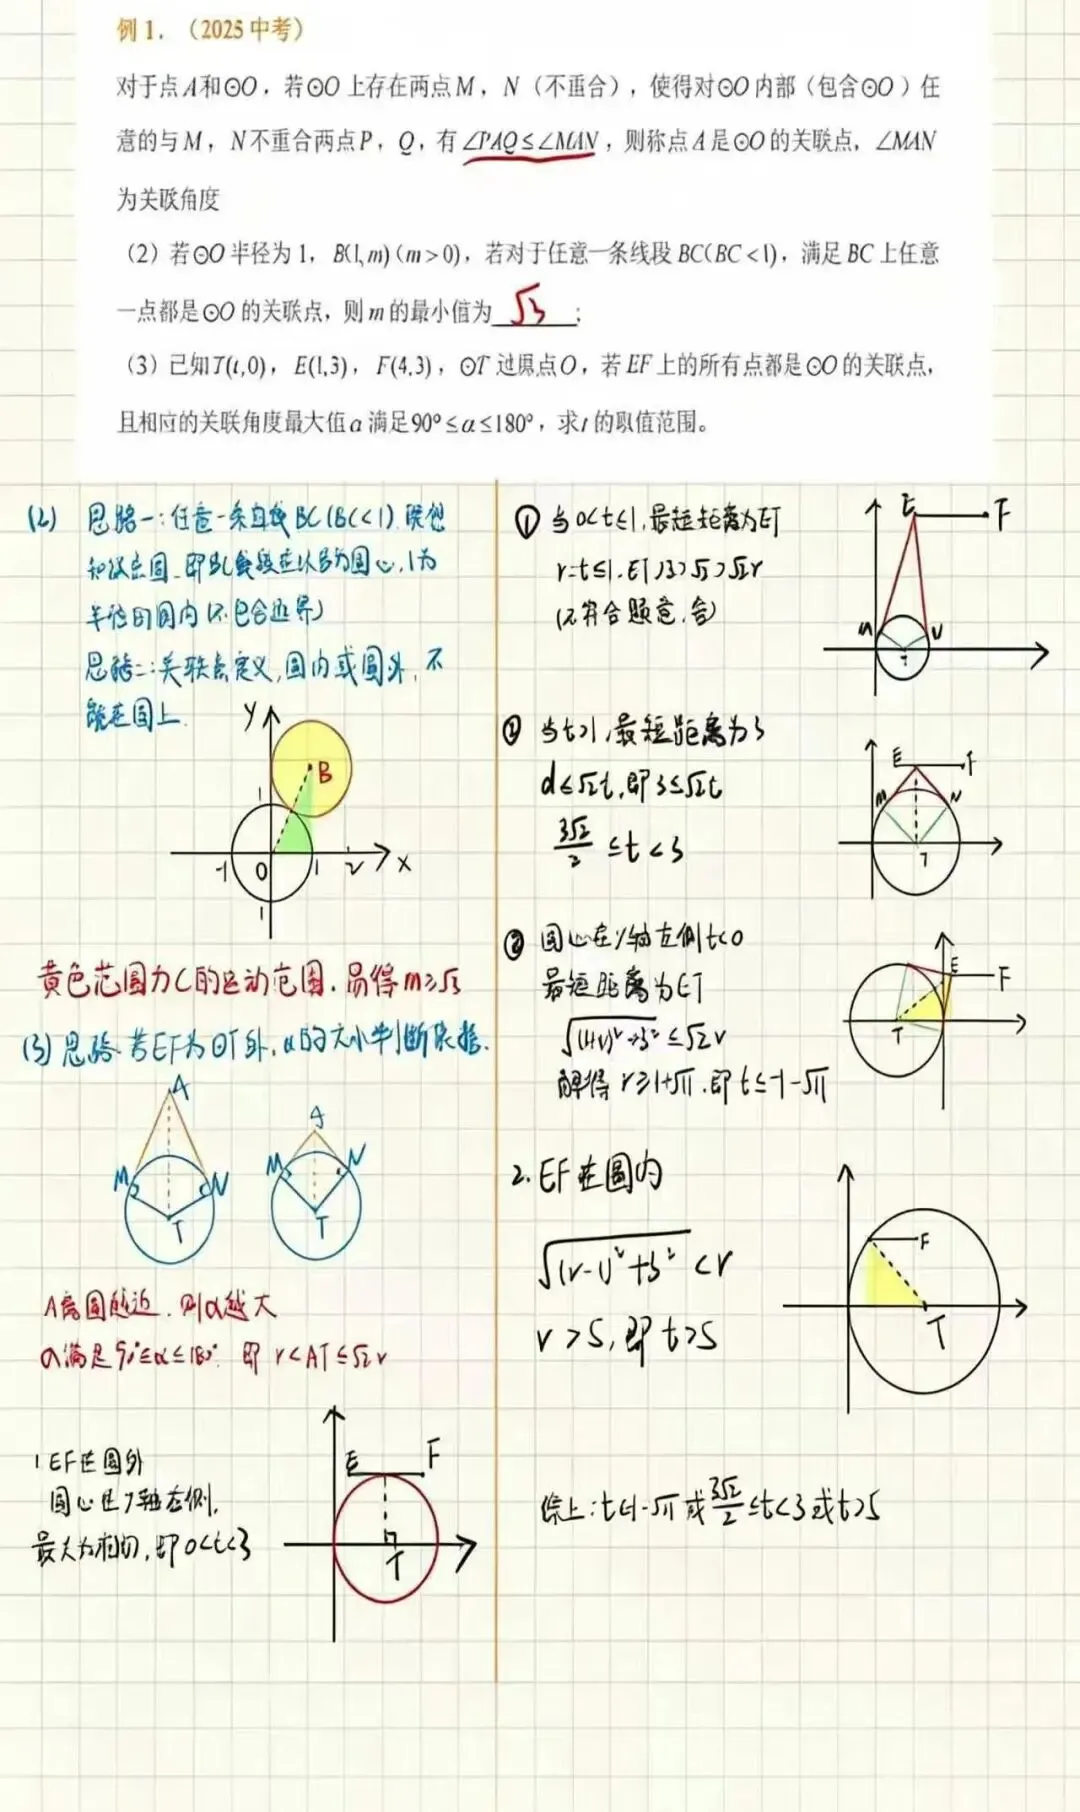 例1.（2025中考）
对于点A和⊙O，若⊙O上存在两点M，N（不重合），使得对⊙O内部（包含⊙O）任
意的与M，N不重合两点P，Q，有∠PAQ≤∠MAN，则称点A是⊙O的关联点，∠MAN
为关联角度
（2）若⊙O半径为1，B(1,m)（m>0），若对于任意一条线段BC(BC<1)，满足BC上任意
一点都是⊙O的关联点，则m的最小值为 √3 ；
（3）已知T(t,0)，E(1,3)，F(4,3)，⊙T过原点O，若EF上的所有点都是⊙O的关联点，
且相应的关联角度最大值α满足90°≤α≤180°，求t的取值范围。
(2) 思路一:任意一条直线BC(BC<1).联想
和设定圆.即BC线段在以B为圆心,1为
半径的圆内(不包含边界)
思路二:关联点定义,圆内或圆外,不
能在圆上.
y
B
1
-1 0 1 2 x
1
黄色范围为C的运动范围.易得m≥√3
(3)思路.若EF为⊙T外,α的大小判断依据.
A
M N
T
A
M N
T
A离圆越近.则α越大
α满足90°≤α≤180°.即 r<AT≤√2r
1 EF在圆外
圆心在y轴右侧,
最大为相切,即0<t<3
E F
T
① 当0<t≤1,最短距离为ET
r=t≤1.ET≥3>√2>√2r
(不符合题意,舍)
E F
M N
T
② 当t>1,最短距离为3
d≤√2t,即3≤√2t
3√2/2 ≤t<3
E F
M N
T
③ 圆心在y轴左侧t<0
最短距离为ET
√(1+r)²+3² ≤√2r
解得 r≥1+√11.即t≤-1-√11
E F
T
2.EF在圆内
√(r-1)²+3² <r
r>5,即t>5
F
T
综上:t≤-1-√11或3√2/2≤t<3或t>5